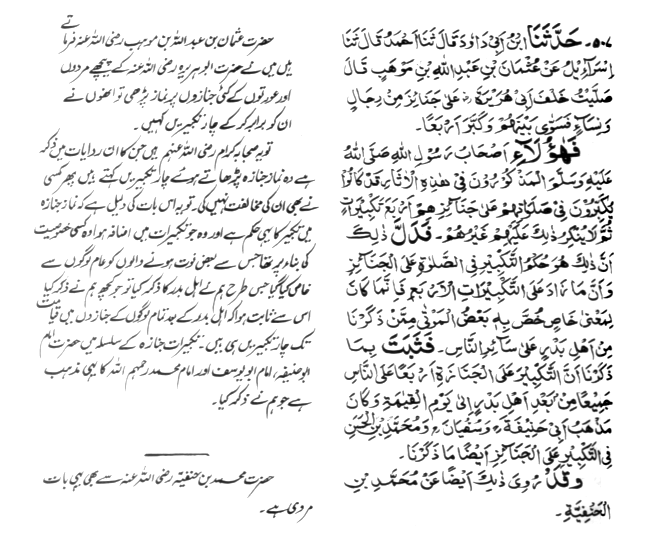 ۵۰۷۔ حَدَّثَنَا ابْنُ اَبِیْ دَاوٗدَ قَالَ ثَنَا اَحْمَدُ قَالَ ثَنَا
اِسْرَآءِیْلُ عَنْ عُثْمَانَ بْنِ عَبْدِ اللّٰهِ بْنِ مَوْهَبٍ قَالَ
صَلَّیْتُ خَلْفَ اَبِیْ هُرَیْرَةَ رض عَلٰی جَنَائِزَ مِنْ رِجَالٍ
وَنِسَآءٍ فَسَوّٰی بَیْنَهُمْ وَكَبَّرَ اَرْبَعًا۔
فَهٰؤُلَآءِ اَصْحَابُ رَسُوْلِ اللّٰهِ صَلَّی اللّٰهُ
عَلَیْهِ وَسَلَّمَ الْمَذْكُوْرُوْنَ فِیْ هٰذِهِ الْاٰثَارِ قَدْ كَانُوْا
یُكَبِّرُوْنَ فِیْ صَلَاتِهِمْ عَلٰی جَنَائِزِهِمْ اَرْبَعَ تَكْبِیْرَاتٍ
ثُمَّ لَا یُنْكِرُ ذٰلِكَ عَلَیْهِمْ غَیْرُهُمْ۔ فَدَلَّ ذٰلِكَ
اَنَّ ذٰلِكَ هُوَ حُكْمُ التَّكْبِیْرِ فِی الصَّلٰوةِ عَلَی الْجَنَائِزِ
وَاَنَّ مَا زَادَ عَلَی التَّكْبِیْرَاتِ الْاَرْبَعِ فَاِنَّمَا كَانَ
لِمَعْنًی خَاصٍّ خُصَّ بِهٖ بَعْضُ الْمَوْتٰی مِمَّنْ ذَكَرْنَا
مِنْ اَهْلِ بَدْرٍ عَلٰی سَآئِرِ النَّاسِ۔ فَثَبَتَ بِمَا
ذَكَرْنَا اَنَّ التَّكْبِیْرَ عَلَی الْجَنَازَةِ اَرْبَعًا عَلَی النَّاسِ
جَمِیْعًا مِنْ بَعْدِ اَهْلِ بَدْرٍ اِلٰی یَوْمِ الْقِیٰمَةِ وَكَانَ
مَذْهَبُ اَبِیْ حَنِیْفَةَ وَسُفْیَانَ وَمُحَمَّدِ بْنِ الْحَسَنِ
فِی التَّكْبِیْرِ عَلَی الْجَنَائِزِ اَیْضًا مَا ذَكَرْنَا۔
وَقَدْ رُوِیَ ذٰلِكَ اَیْضًا عَنْ مُحَمَّدِ بْنِ
الْحَنَفِیَّةِ۔
حضرت عثمان بن عبد اللہ بن موہب رضی اللہ عنہ فرماتے
ہیں میں نے حضرت ابوہریرہ رضی اللہ عنہ کے پیچھے مردوں
اور عورتوں کے کئی جنازوں پر نماز پڑھی تو انھوں نے
ان کو برابر کر کے چار تکبیریں کہیں۔
تو یہ صحابہ کرام رضی اللہ عنہم ہیں جن کا ان روایات میں ذکر
ہے وہ نماز جنازہ پڑھاتے ہوئے چار تکبیریں کہتے ہیں پھر کسی
نے بھی ان کی مخالفت نہیں کی۔ تو یہ اس بات کی دلیل ہے کہ نماز جنازہ
میں تکبیر کا یہی حکم ہے اور وہ جو تکبیرات میں اضافہ ہوا وہ کسی خصوصیت
کی بناء پر تھا جس سے بعض فوت ہونے والوں کو عام لوگوں سے
خاص کیا گیا جس طرح ہم نے اہل بدر کا ذکر کیا تو جو کچھ ہم نے ذکر کیا
اس سے ثابت ہوا کہ اہل بدر کے بعد تمام لوگوں کے جنازوں میں قیامت
تک چار تکبیریں ہی ہیں۔ تکبیرات جنازہ کے سلسلہ میں حضرت امام
ابو حنیفہ، امام ابو یوسف اور امام محمد رحمہم اللہ کا یہی مذہب
ہے جو ہم نے ذکر کیا۔
حضرت محمد بن حنفیہ رضی اللہ عنہ سے بھی یہی بات
مروی ہے۔